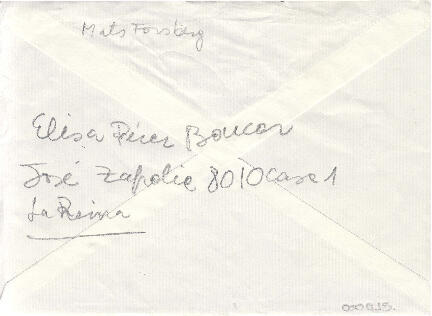 Mats Forsberg
Elisa Pérez Boucar
José Zapolie 8010 Case 1
La Reina
000915.